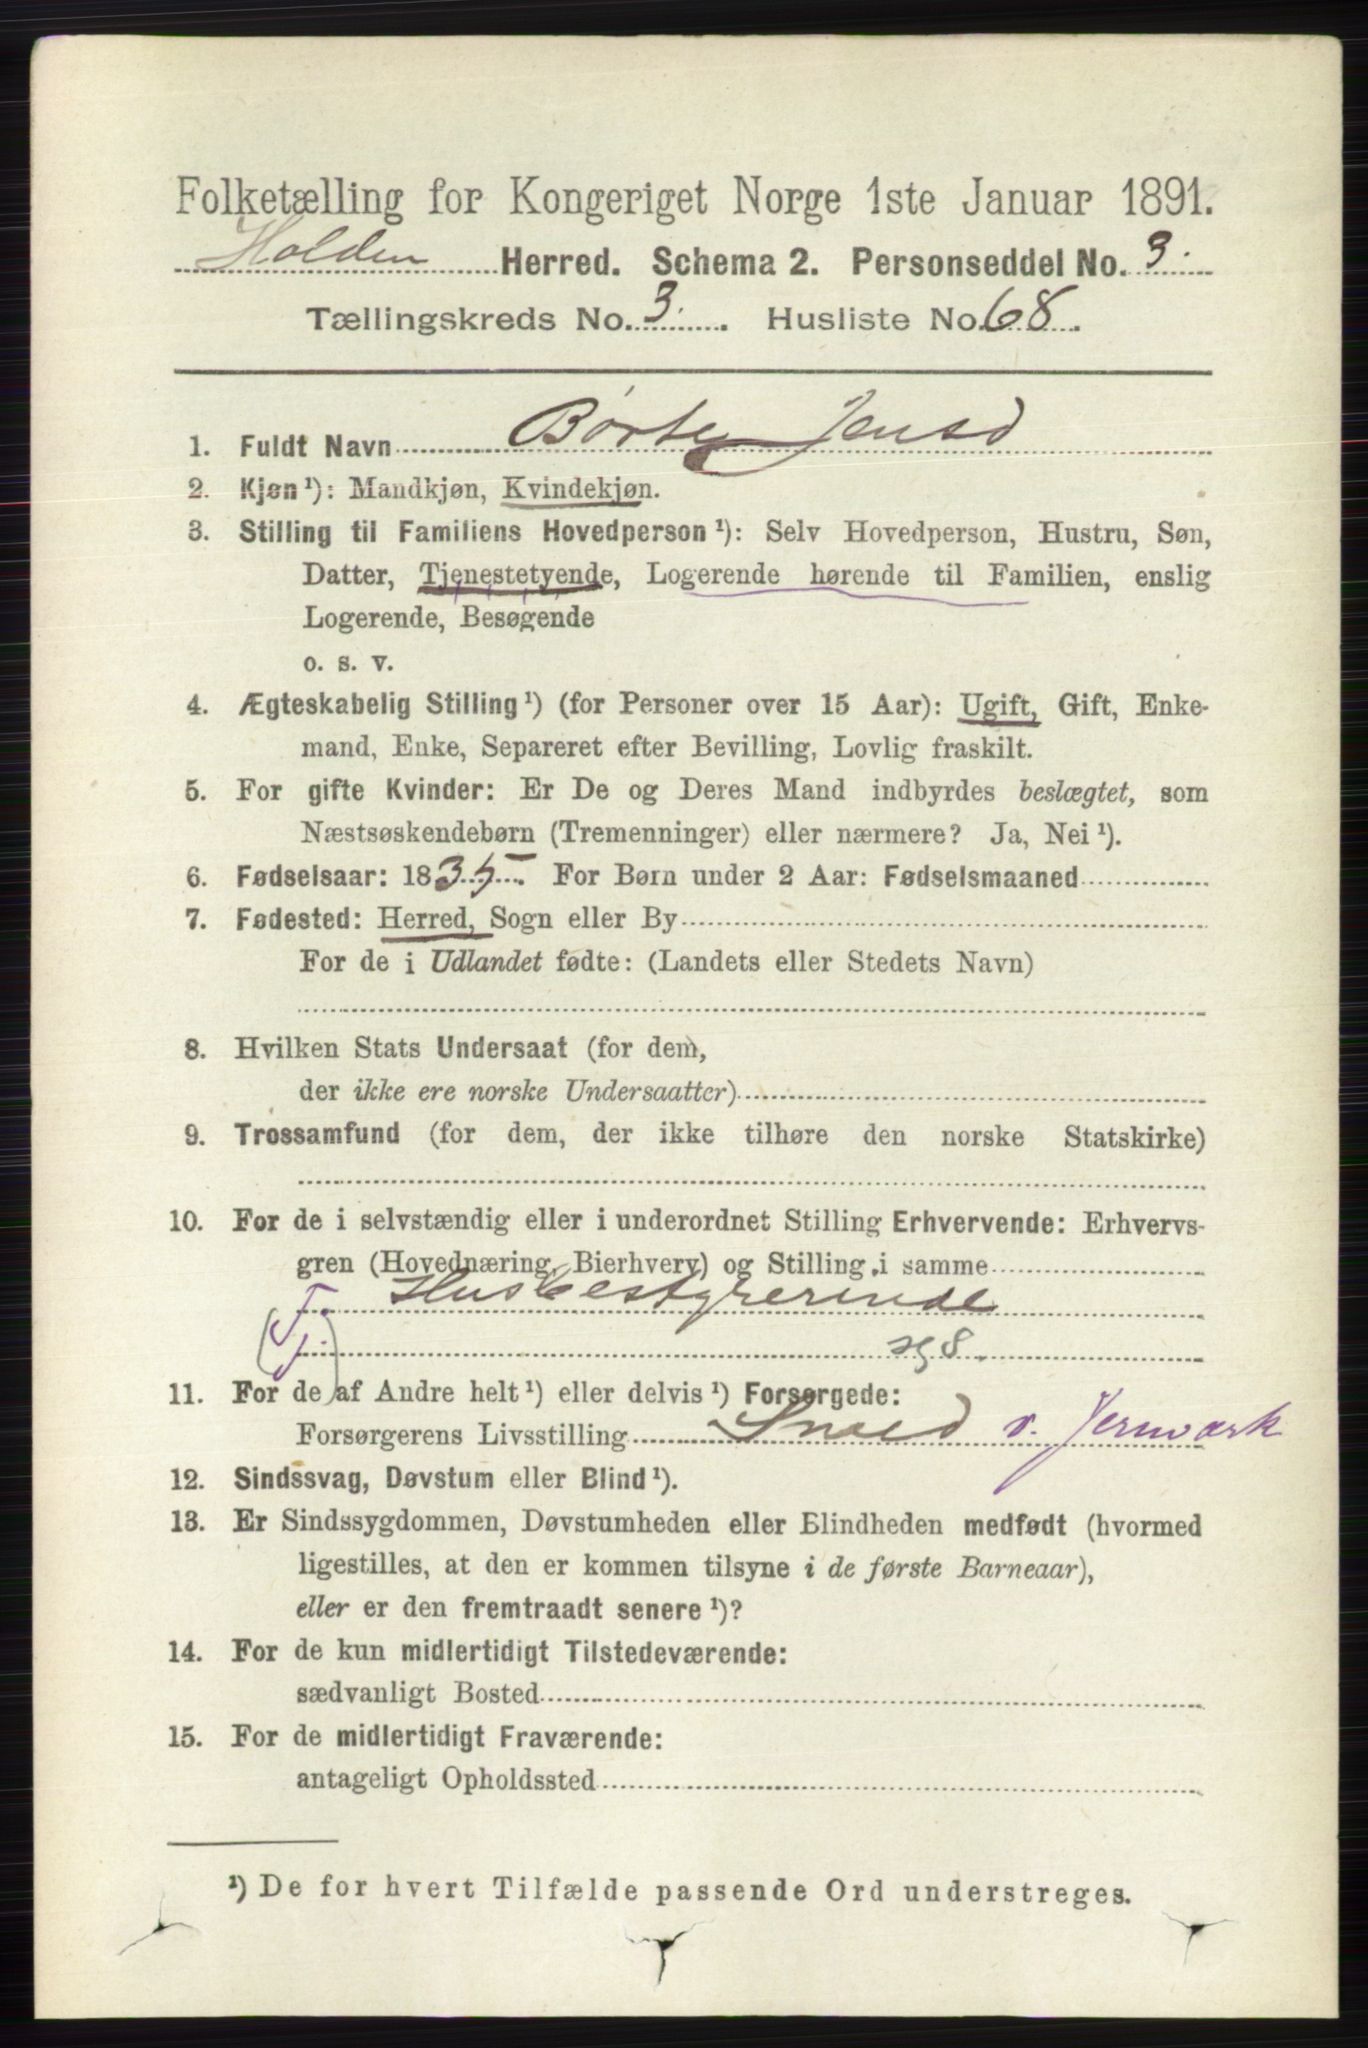 Folketælling for Kongeriget Norge 1ste Januar 1891.
Holden Herred. Schema 2. Personseddel No. 3.
Tællingskreds No. 3. Husliste No. 68.
1. Fuldt Navn Børte Jensd
2. Kjøn ¹): Mandkjøn, Kvindekjøn.
3. Stilling til Familiens Hovedperson ¹): Selv Hovedperson, Hustru, Søn,
Datter, Tjenestetyende, Logerende hørende til Familien, enslig
Logerende, Besøgende
o. s. v.
4. Ægteskabelig Stilling ¹) (for Personer over 15 Aar): Ugift, Gift, Enke-
mand, Enke, Separeret efter Bevilling, Lovlig fraskilt.
5. For gifte Kvinder: Er De og Deres Mand indbyrdes beslægtet, som
Næstsøskendebørn (Tremenninger) eller nærmere? Ja, Nei ¹).
6. Fødselsaar: 1835. For Børn under 2 Aar: Fødselsmaaned
7. Fødested: Herred, Sogn eller By
For de i Udlandet fødte: (Landets eller Stedets Navn)
8. Hvilken Stats Undersaat (for dem,
der ikke ere norske Undersaatter)
9. Trossamfund (for dem, der ikke tilhøre den norske Statskirke)
10. For de i selvstændig eller i underordnet Stilling Erhvervende: Erhvervs-
gren (Hovednæring, Bierhverv) og Stilling i samme
Husbestyrerinde
11. For de af Andre helt ¹) eller delvis ¹) Forsørgede:
Forsørgerens Livsstilling Smed v. Jernværk
12. Sindssvag, Døvstum eller Blind ¹).
13. Er Sindssygdommen, Døvstumheden eller Blindheden medfødt (hvormed
ligestilles, at den er kommen tilsyne i de første Barneaar),
eller er den fremtraadt senere ¹)?
14. For de kun midlertidigt Tilstedeværende:
sædvanligt Bosted
15. For de midlertidigt Fraværende:
antageligt Opholdssted
¹) De for hvert Tilfælde passende Ord understreges.